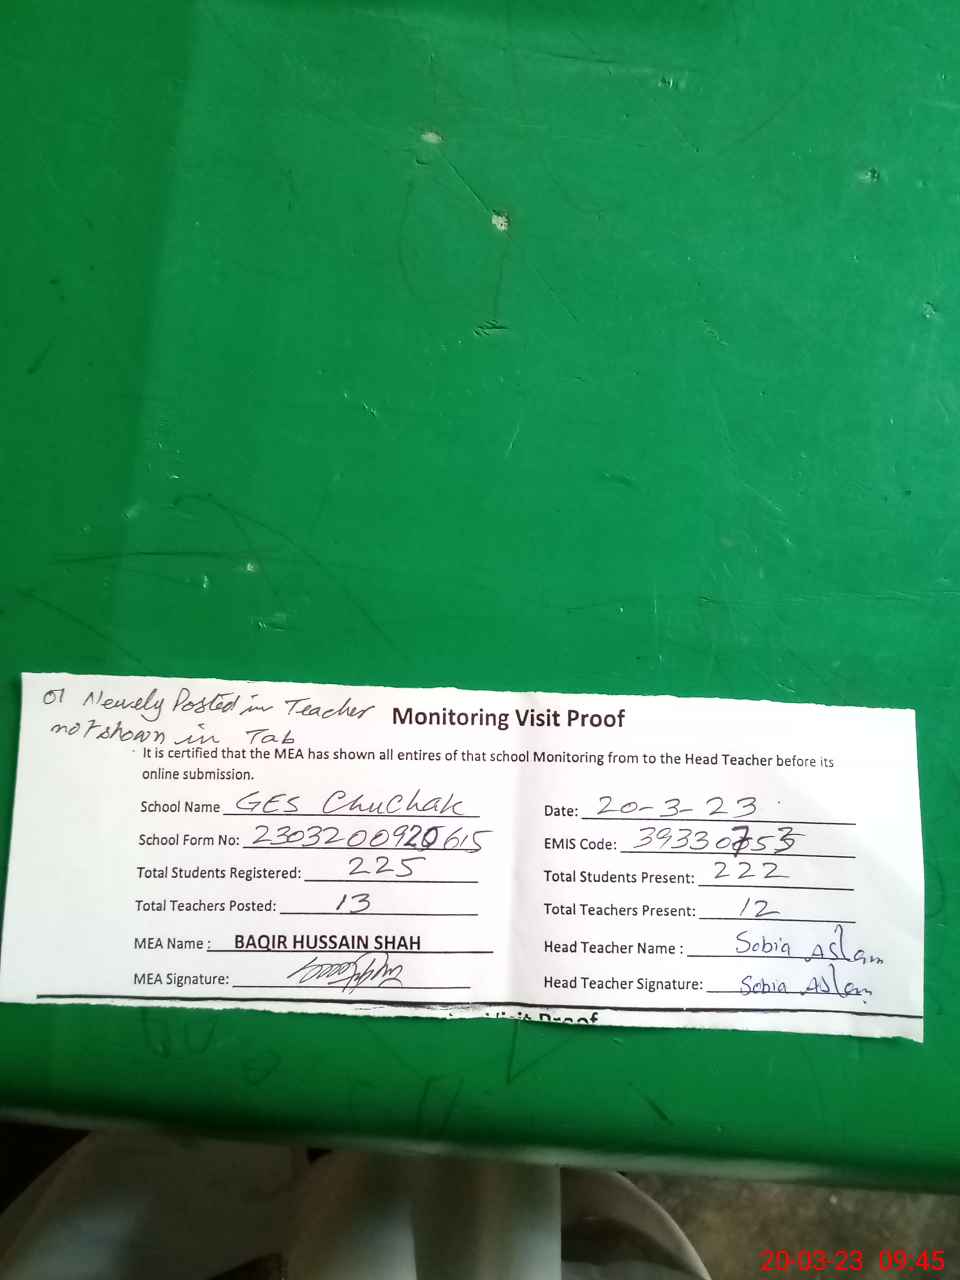 01 Newely Posted in Teacher
not shown in Tab
Monitoring Visit Proof
It is certified that the MEA has shown all entires of that school Monitoring from to the Head Teacher before its
online submission.
School Name GES Chuchak
Date: 20-3-23
School Form No: 2303200920615
EMIS Code: 39330753
Total Students Registered: 225
Total Students Present: 222
Total Teachers Posted: 13
Total Teachers Present: 12
MEA Name : BAQIR HUSSAIN SHAH
Head Teacher Name : Sobia Aslam
MEA Signature:
Head Teacher Signature: Sobia Aslam
Visit Proof
20-03-23 09:45